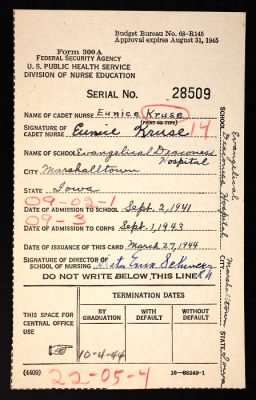 Budget Bureau No. 68-R145
Approval expires August 31, 1945
Form 300A
FEDERAL SECURITY AGENCY
U. S. PUBLIC HEALTH SERVICE
DIVISION OF NURSE EDUCATION
SERIAL NO. 28509
NAME OF CADET NURSE Eunice Kruse
(PRINT OR TYPE)
SIGNATURE OF CADET NURSE Eunice Kruse 14
NAME OF SCHOOL Evangelical Deaconess Hospital
CITY Marshalltown
STATE Iowa
09-02-1
DATE OF ADMISSION TO SCHOOL Sept. 2, 1941
09-3
DATE OF ADMISSION TO CORPS Sept. 1, 1943
DATE OF ISSUANCE OF THIS CARD March 27, 1944
SIGNATURE OF DIRECTOR OF SCHOOL OF NURSING
DO NOT WRITE BELOW THIS LINE
TERMINATION DATES
THIS SPACE FOR CENTRAL OFFICE USE
BY GRADUATION
WITH DEFAULT
WITHOUT DEFAULT
10-4-44
(4409)
22-05-4
16-38249-1
SCHOOL Evangelical Deaconess Hospital CITY Marshalltown STATE Iowa